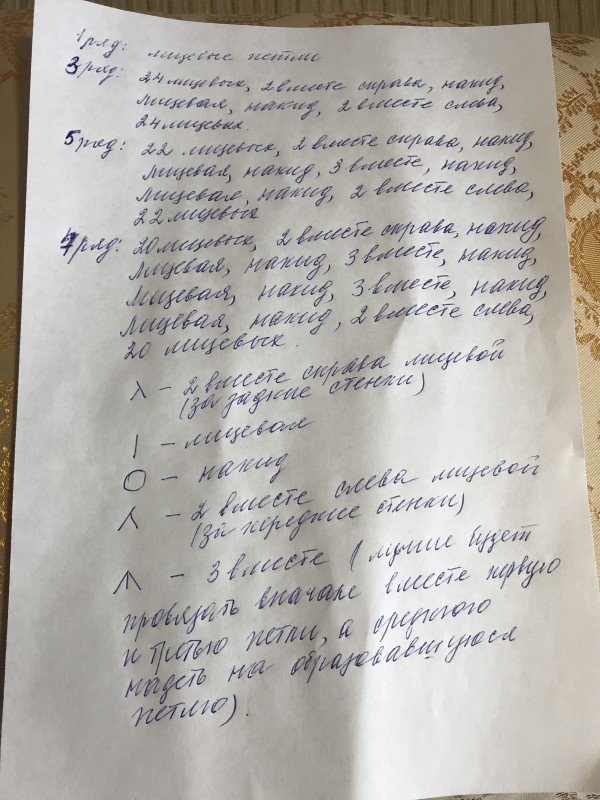 1 ряд: лицевые петли
3 ряд: 24 лицевых, 2 вместе справа, накид,
лицевая, накид, 2 вместе слева,
24 лицевых.
5 ряд: 22 лицевых, 2 вместе справа, накид,
лицевая, накид, 3 вместе, накид,
лицевая, накид, 2 вместе слева,
22 лицевых
7 ряд: 20 лицевых, 2 вместе справа, накид,
лицевая, накид, 3 вместе, накид,
лицевая, накид, 3 вместе, накид,
лицевая, накид, 2 вместе слева,
20 лицевых.
⅄ – 2 вместе справа лицевой
(за задние стенки)
| – лицевая
O – накид
⅄ – 2 вместе слева лицевой
(за передние стенки)
– 3 вместе (лучше будет
провязать вначале вместе первую
и третью петли, а среднюю
надеть на образовавшуюся
петлю).